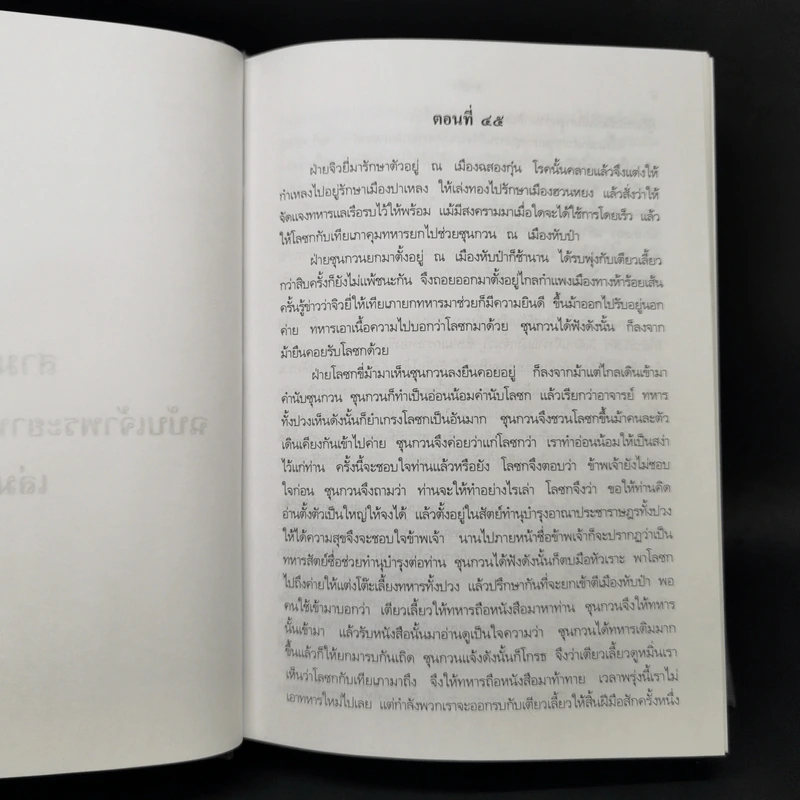 ตอนที่ ๔๕
ฝ่ายจิวยี่มารักษาตัวอยู่ ณ เมืองฉสองกุ๋น โรคนั้นคลายแล้วจึงแต่งให้
กำเหลงไปอยู่รักษาเมืองปาเหลง ให้เล่งทองไปรักษาเมืองฮวนหยง แล้วสั่งว่าให้
จัดแจงทหารแลเรือรบไว้ให้พร้อม แม้มีสงครามมาเมื่อใดจะได้ใช้การโดยเร็ว แล้ว
ให้โลซกกับเทียเภาคุมทหารยกไปช่วยซุนกวน ณ เมืองหับป๋า
ฝ่ายซุนกวนยกมาตั้งอยู่ ณ เมืองหับป๋าก็ช้านาน ได้รบพุ่งกับเตียวเลี้ยว
กว่าสิบครั้งก็ยังไม่แพ้ชนะกัน จึงถอยออกมาตั้งอยู่ไกลกำแพงเมืองทางห้าร้อยเส้น
ครั้นรู้ข่าวว่าจิวยี่ให้เทียเภายกทหารมาช่วยก็มีความยินดี ขึ้นม้าออกไปรับอยู่นอก
ค่าย ทหารเอาเนื้อความไปบอกว่าโลซกมาด้วย ซุนกวนได้ฟังดังนั้น ก็ลงจาก
ม้ายืนคอยรับโลซกด้วย
ฝ่ายโลซกขี่ม้ามาเห็นซุนกวนลงยืนคอยอยู่ ก็ลงจากม้าแต่ไกลเดินเข้ามา
คำนับซุนกวน ซุนกวนก็ทำเป็นอ่อนน้อมคำนับโลซก แล้วเรียกว่าอาจารย์ ทหาร
ทั้งปวงเห็นดังนั้นก็ยำเกรงโลซกเป็นอันมาก ซุนกวนจึงชวนโลซกขึ้นม้าคนละตัว
เดินเคียงกันเข้าไปค่าย ซุนกวนจึงค่อยว่าแก่โลซกว่า เราทำอ่อนน้อมให้เป็นสง่า
ไว้แก่ท่าน ครั้งนี้จะชอบใจท่านแล้วหรือยัง โลซกจึงตอบว่า ข้าพเจ้ายังไม่ชอบ
ใจก่อน ซุนกวนจึงถามว่า ท่านจะให้ทำอย่างไรเล่า โลซกจึงว่า ขอให้ท่านคิด
อ่านตั้งตัวเป็นใหญ่ให้จงได้ แล้วตั้งอยู่ในสัตย์ทำนุบำรุงอาณาประชาราษฎรทั้งปวง
ให้ได้ความสุขจึงจะชอบใจข้าพเจ้า นานไปภายหน้าชื่อข้าพเจ้าก็จะปรากฏว่าเป็น
ทหารสัตย์ซื่อช่วยทำนุบำรุงต่อท่าน ซุนกวนได้ฟังดังนั้นก็ตบมือหัวเราะ พาโลซก
ไปถึงค่ายให้แต่งโต๊ะเลี้ยงทหารทั้งปวง แล้วปรึกษากันที่จะยกเข้าตีเมืองหับป๋า พอ
คนใช้เข้ามาบอกว่า เตียวเลี้ยวให้ทหารถือหนังสือมาหาท่าน ซุนกวนจึงให้ทหาร
นั้นเข้ามา แล้วรับหนังสือนั้นมาอ่านดูเป็นใจความว่า ซุนกวนได้ทหารเติมมาก
ขึ้นแล้วก็ให้ยกมารบกันเถิด ซุนกวนแจ้งดังนั้นก็โกรธ จึงว่าเตียวเลี้ยวดูหมิ่นเรา
เห็นว่าโลซกกับเทียเภามาถึง จึงให้ทหารถือหนังสือมาท้าทาย เวลาพรุ่งนี้เราไม่
เอาทหารใหม่ไปเลย แต่กำลังพวกเราจะออกรบกับเตียวเลี้ยวให้สิ้นฝีมือสักครั้งหนึ่ง